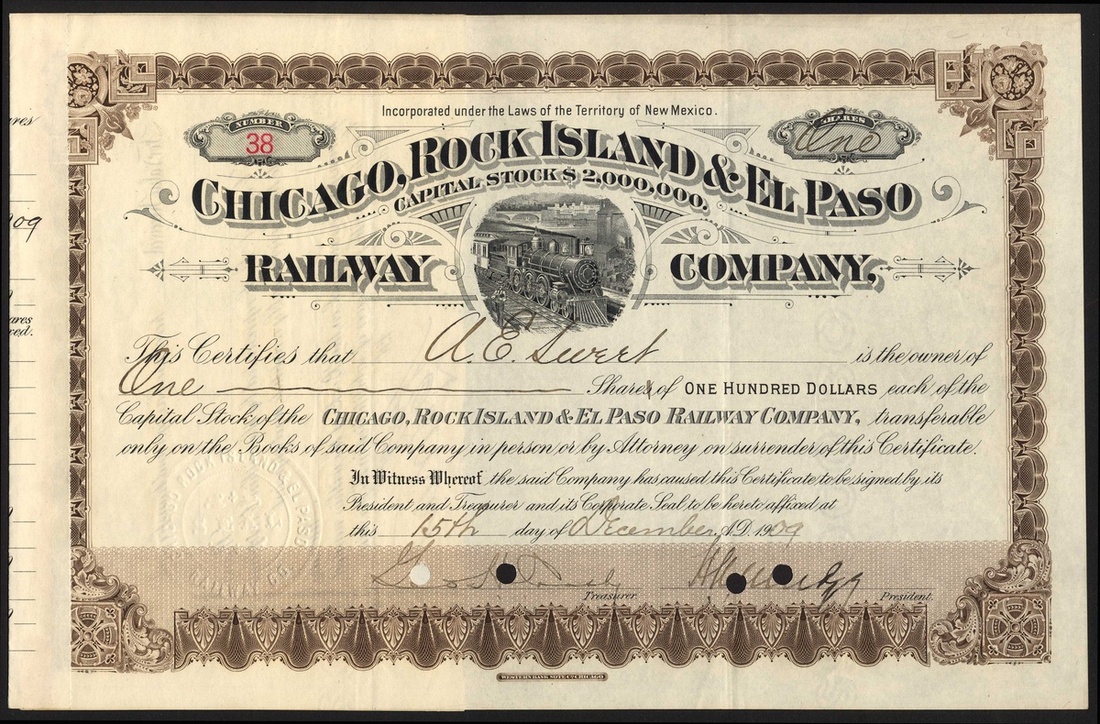 Incorporated under the Laws of the Territory of New Mexico.
NUMBER
38
SHARES
One
CHICAGO, ROCK ISLAND & EL PASO
CAPITAL STOCK $2,000,000.
RAILWAY COMPANY,
This Certifies that A. E. Sweet is the owner of
One Shares of ONE HUNDRED DOLLARS each of the
Capital Stock of the CHICAGO, ROCK ISLAND & EL PASO RAILWAY COMPANY, transferable
only on the Books of said Company in person or by Attorney on surrender of this Certificate.
In Witness Whereof the said Company has caused this Certificate to be signed by its
President and Treasurer and its Corporate Seal to be hereto affixed at
this 15th day of December A.D. 1909
Treasurer.
President.
WESTERN BANK NOTE CO. CHICAGO
ROCK ISLAND & EL PASO
RAILWAY CO.
ares
09
ares